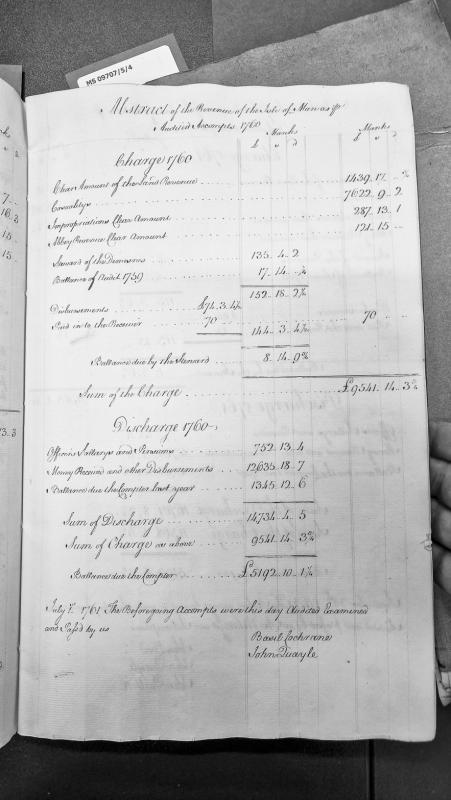 MS 09707/5/4
Abstract of the Revenue of the Isle of Man as pr
Audited Accompts 1760
Manks
£ s d
Manks
£ s d
Charge 1760
Clear Amount of the Land Revenue 1439 .. 17 ..
Casualtys 7622 .. 9 .. 2
Impropriations Clear Amount 287 .. 13 .. 1
Abbey Revenue Clear Amount 121 .. 15 ..
Steward of the Demesnes 135 .. 4 .. 2
Ballance of Audit 1759 17 .. 14 .. ¼
152 .. 18 .. 2¼
Disbursements £74 .. 3 .. 4¼
Paid in to the Receiver 70 .. 144 .. 3 .. 4¼ 70
Ballance due by the Steward 8 .. 14 ..
Sum of the Charge £9541 .. 14 .. 3¼
Discharge 1760
Officers Sallarys and Pensions 752 .. 13 .. 4
Money Received and other Disbursements 12635 .. 18 .. 7
Ballance due the Compter last year 1345 .. 12 .. 6
Sum of Discharge 14734 .. 4 .. 5
Sum of Charge as above 9541 .. 14 .. 3¼
Ballance due the Compter £5192 .. 10 ..
July 1761 The Beforegoing Accompts were this day Audited Examined
and Pass'd by us
Basil Cochrane
John Quayle